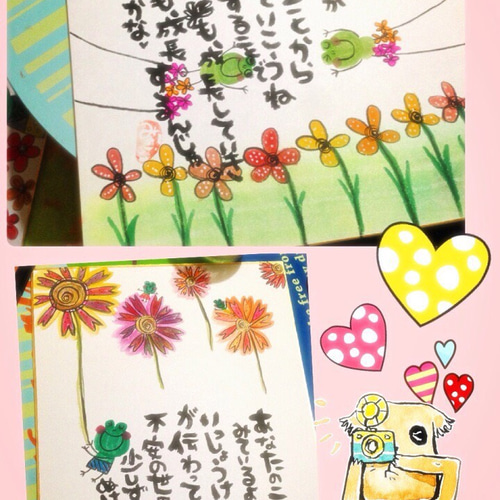 が
ことから
ていこうね
することで
も成長していき
も成長するんじゃ
かな
あなたのこ
みているよ
いっしょうけ
が伝わって
不安の世
少しず
free fro